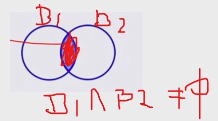 B₁ B₂
B₁ ∩ B2 ≠ φ